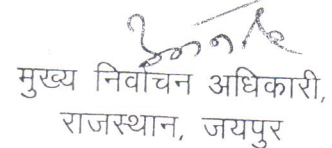 मुख्य निर्वाचन अधिकारी,
राजस्थान, जयपुर